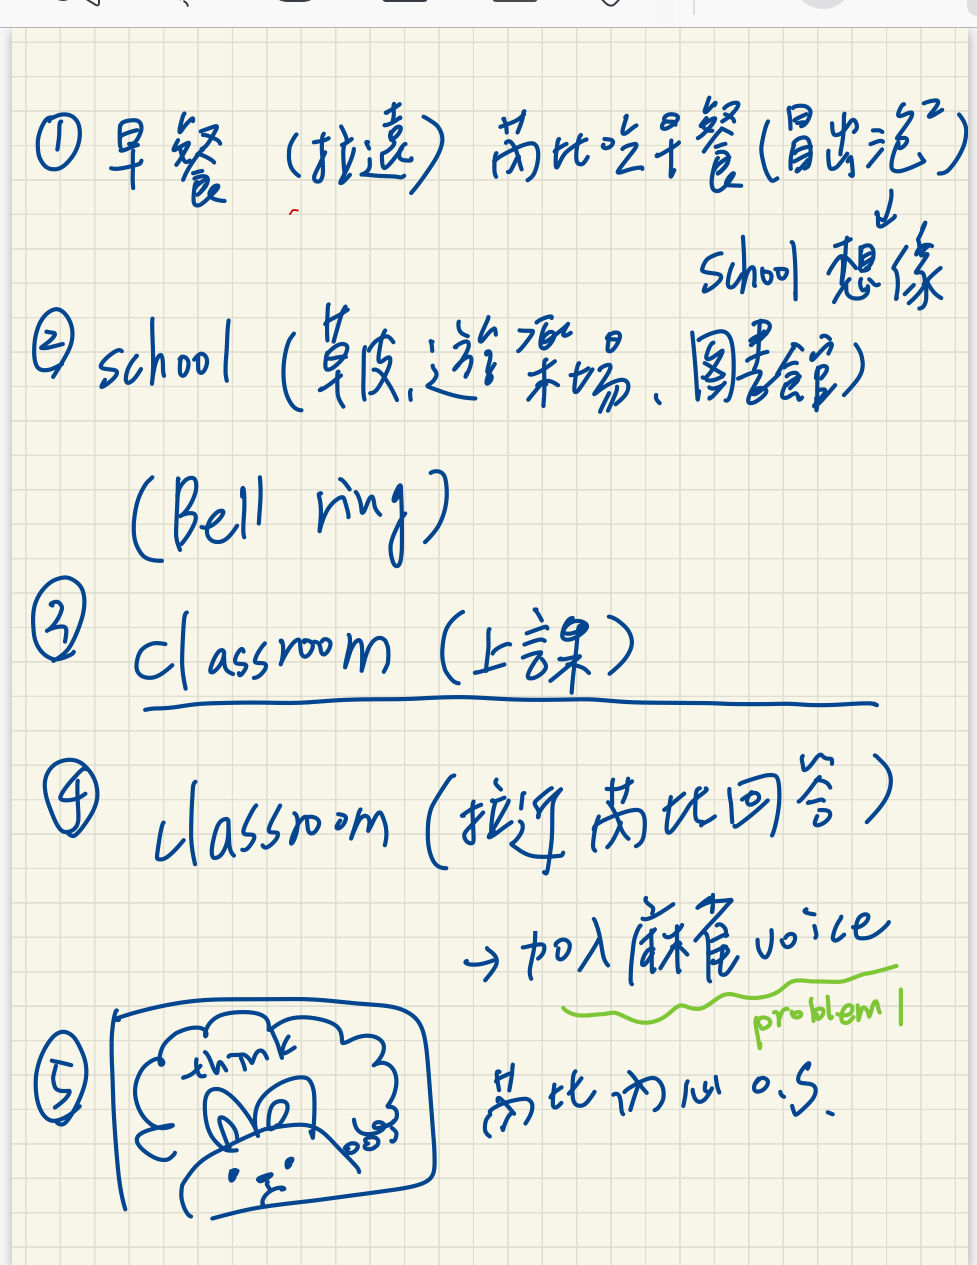 ① 早餐 (拉遠) 芮比吃早餐(冒出泡²)
↓
school 想像
② school (草皮、遊樂場、圖書館)
(Bell ring)
③ classroom (上課)
④ classroom (拉近 芮比回答)
→ 加入麻雀 voice
problem 1
⑤ think
芮比內心 O.S.